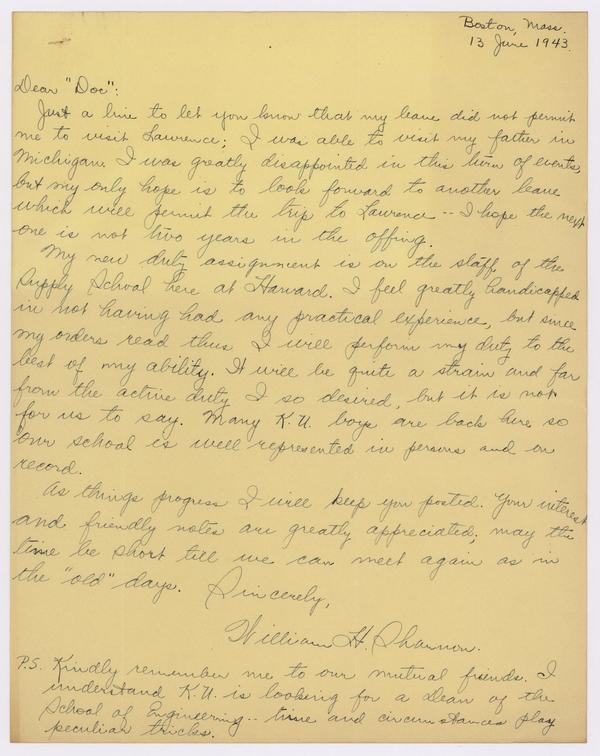 Boston, Mass.
13 June 1943.
Dear "Doc":
Just a line to let you know that my leave did not permit
me to visit Lawrence; I was able to visit my father in
Michigan. I was greatly disappointed in this turn of events,
but my only hope is to look forward to another leave
which will permit the trip to Lawrence -- I hope the next
one is not two years in the offing.
My new duty assignment is on the staff of the
Supply School here at Harvard. I feel greatly handicapped
in not having had any practical experience, but since
my orders read thus I will perform my duty to the
best of my ability. It will be quite a strain and far
from the active duty I so desired, but it is not
for us to say. Many K.U. boys are back here so
our school is well represented in persons and on
record.
As things progress I will keep you posted. Your interest
and friendly notes are greatly appreciated, may the
time be short till we can meet again as in
the "old" days.
Sincerely,
William H. Shannon.
P.S. Kindly remember me to our mutual friends. I
understand K.U. is looking for a Dean of the
School of Engineering -- time and circumstances play
peculiar tricks.